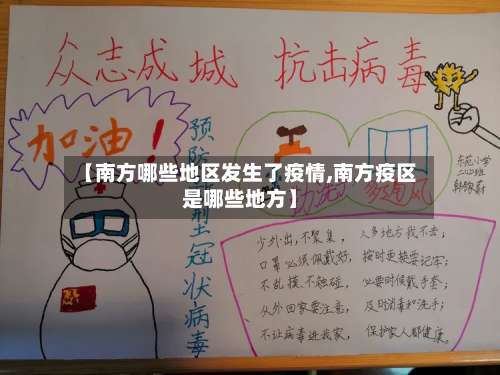 众志成城 抗击病毒
加油！
预防新型冠状病毒
勤洗手
多通风
【南方哪些地区发生了疫情,南方疫区
是哪些地方】
少外出,不聚集,
口罩必须佩戴好,
不乱摸,不触碰,
从外回家要注意,
不让病毒进我家,
人多地方我不去;
按时更换要记牢;
必要时候戴手套;
及时消毒和洗手;
保护家人都健康。